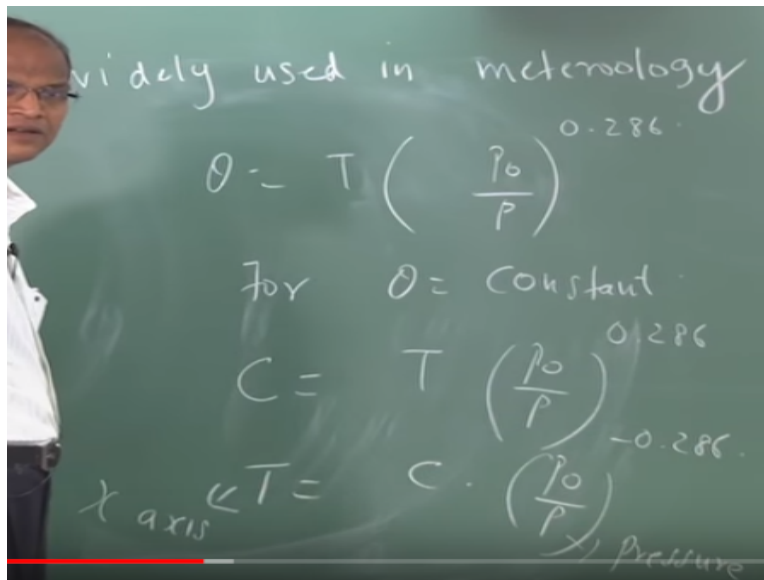 widely used in meteroology
θ = T ( Po / P ) 0.286
For θ = constant
C = T ( Po / P ) 0.286
T = C . ( Po / P ) -0.286
X axis
pressure